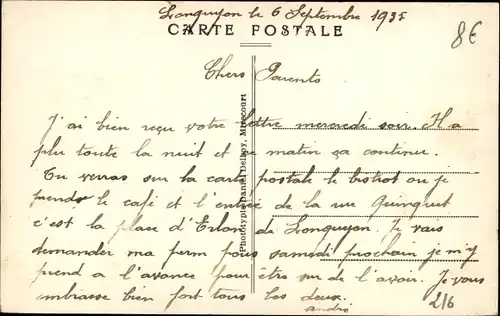 Longuyon le 6 Septembre 1935
CARTE POSTALE
8€
Chers Parents
J'ai bien reçu votre lettre mercredi soir. Il a
plu toute la nuit et ce matin ça continue.
Tu verras sur la carte postale le bistrot ou je
prends le café et l'entrée de la rue Quinquet
c'est la place d'Erlon de Longuyon. Je vais
demander ma perm pour samedi prochain je m'y
prend a l'avance pour être sur de l'avoir. Je vous
embrasse bien fort tous les deux.
andré
2/6
Photosypie Daniel Delboy, Mirecourt